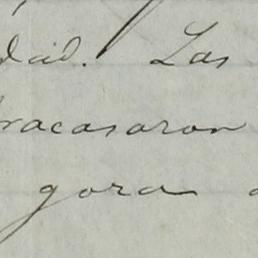 dad. Las
fracasaron
gora